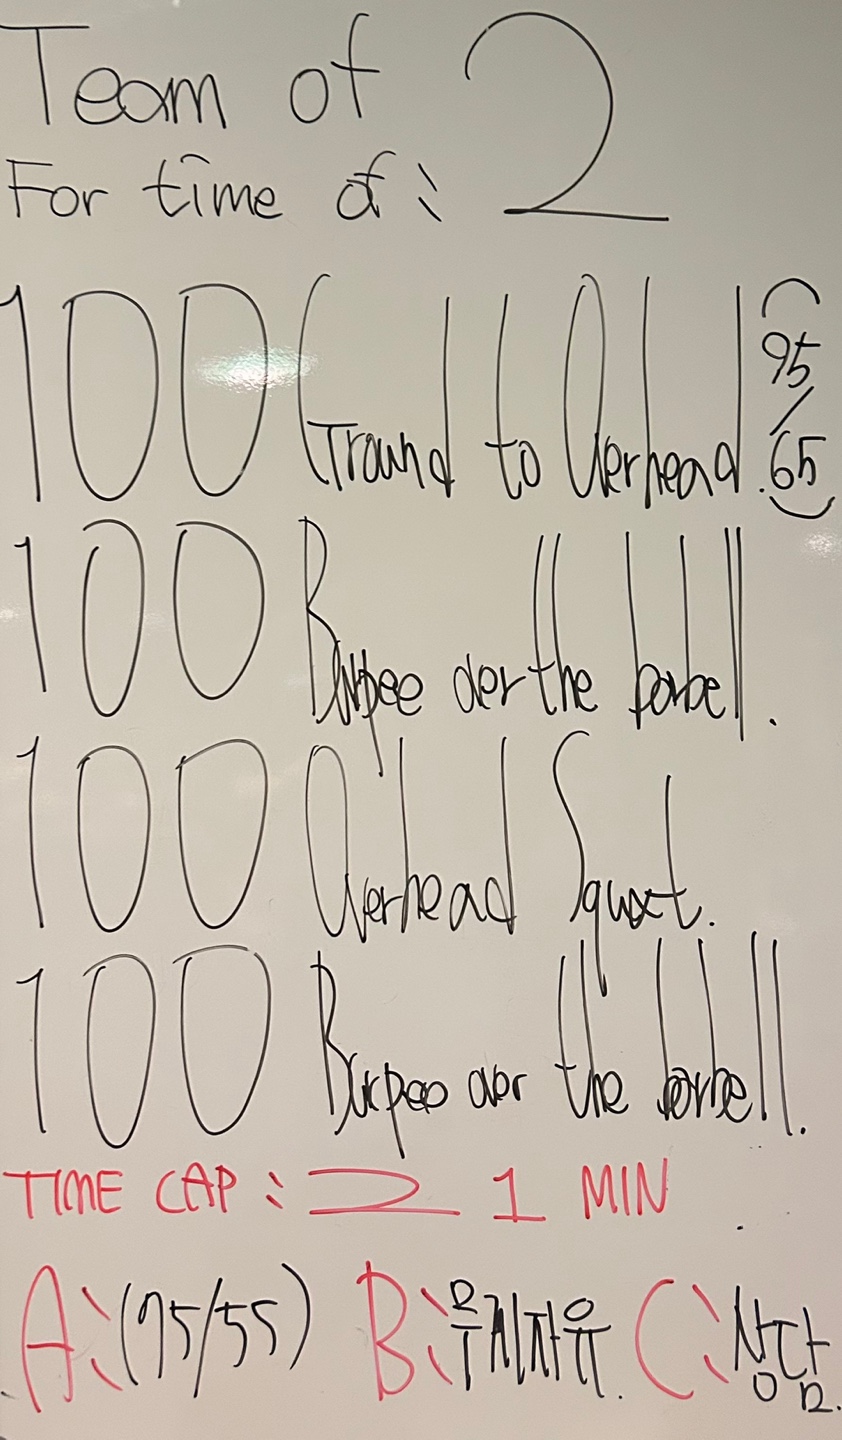 Team of 2
For time of:
100 Ground to Overhead. (95/65)
100 Burpee over the barbell.
100 Overhead Squat.
100 Burpee over the barbell.
TIME CAP: 21 MIN
A: (75/55) B: 무게자유. C: 상담.